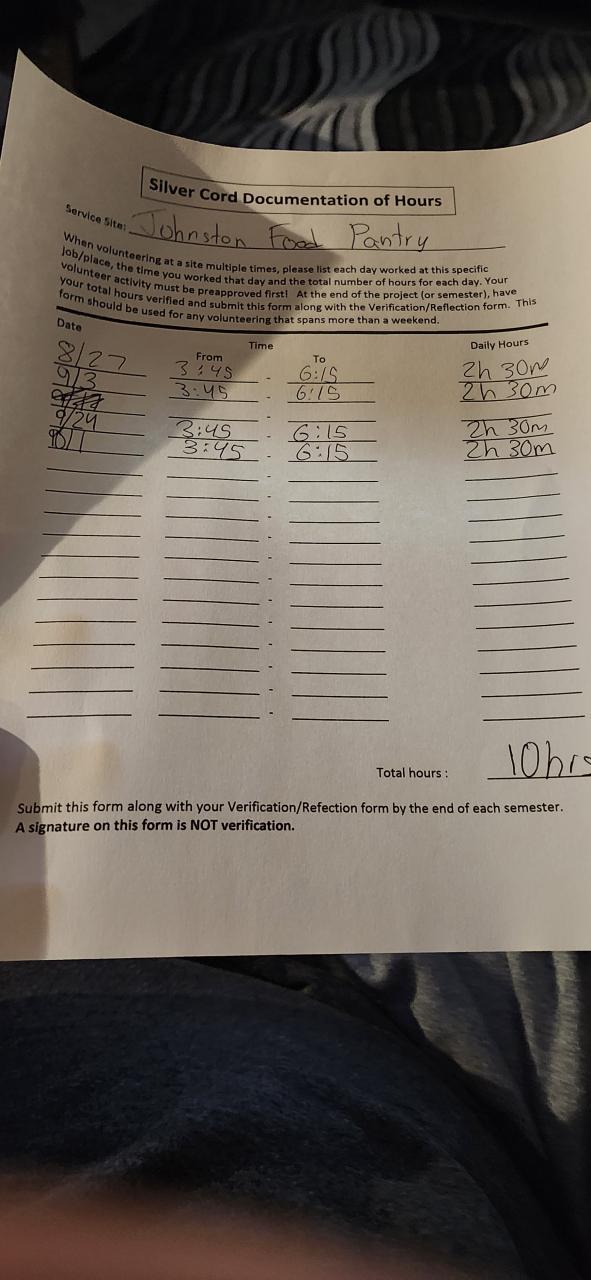 Silver Cord Documentation of Hours
Service Site: Johnston Food Pantry
When volunteering at a site multiple times, please list each day worked at this specific
job/place, the time you worked that day and the total number of hours for each day. Your
volunteer activity must be preapproved first! At the end of the project (or semester), have
your total hours verified and submit this form along with the Verification/Reflection form. This
form should be used for any volunteering that spans more than a weekend.
Date Time Daily Hours
From To
8/27 3:45 - 6:15 2h 30m
9/3 3:45 - 6:15 2h 30m
9/24 3:45 - 6:15 2h 30m
10/1 3:45 - 6:15 2h 30m
Total hours : 10hrs
Submit this form along with your Verification/Refection form by the end of each semester.
A signature on this form is NOT verification.